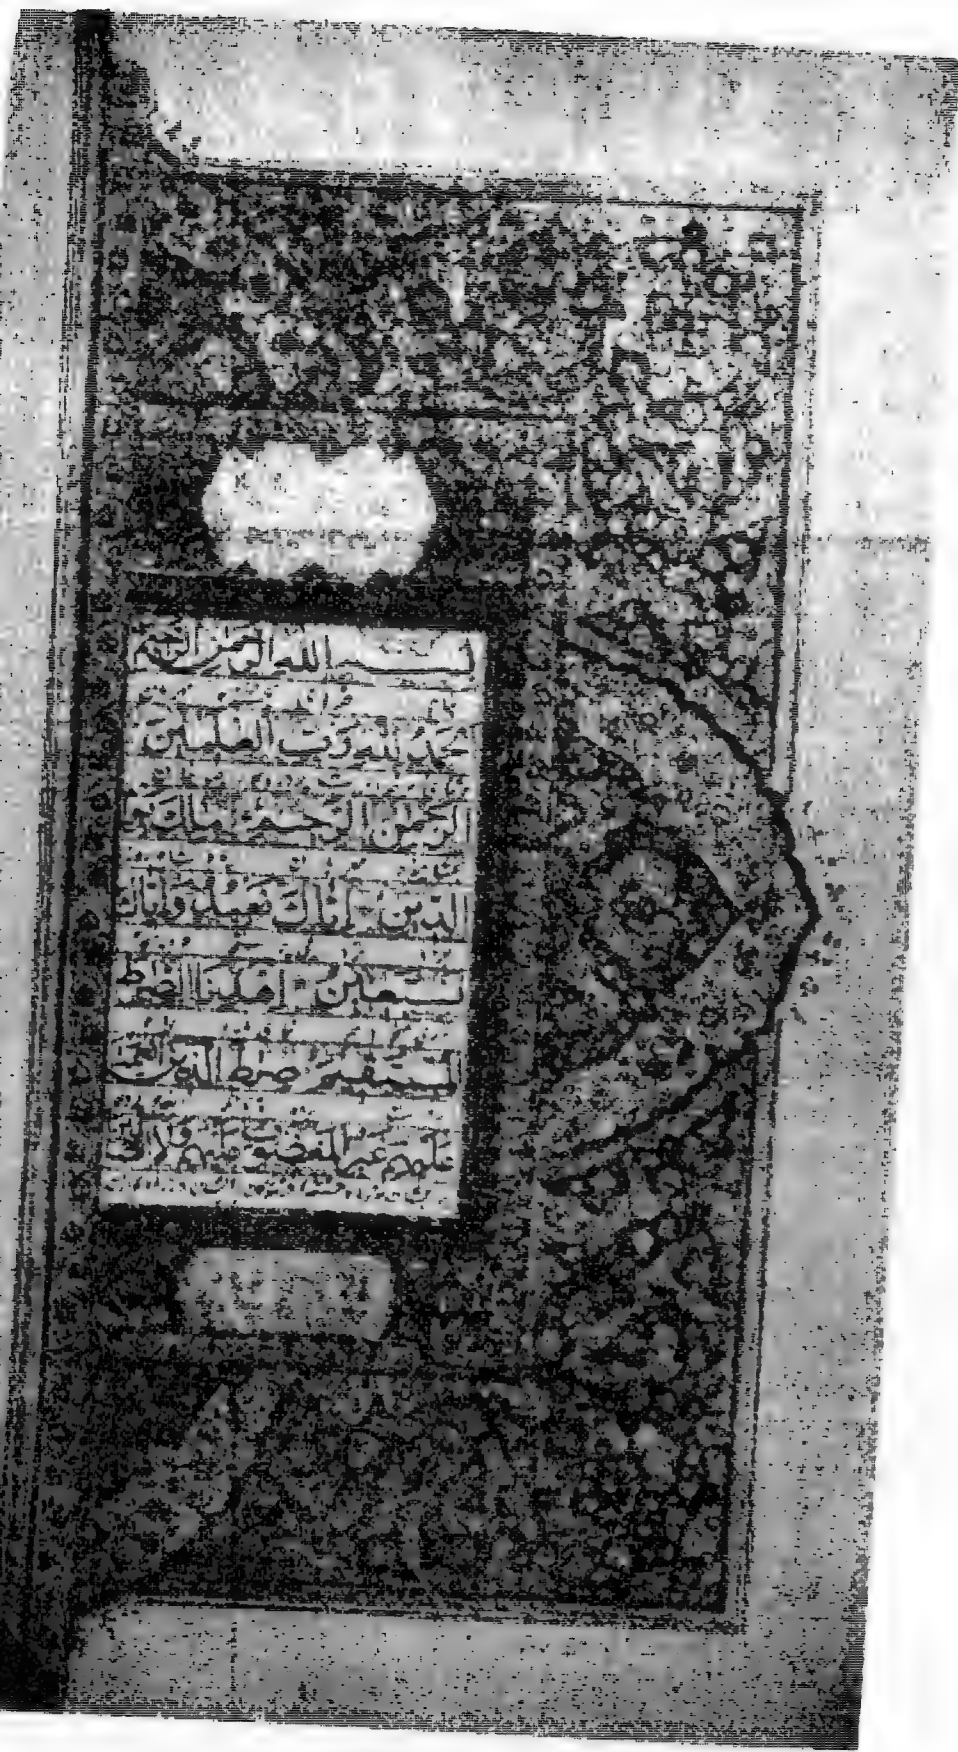 بسم الله الرحمن الرحيم
الحمد لله رب العلمين
الرحمن الرحيم ملك يوم
الدين اياك نعبد واياك
نستعين اهدنا الصراط
المستقيم صراط الذين انعمت
عليهم غير المغضوب عليهم ولا الضالين